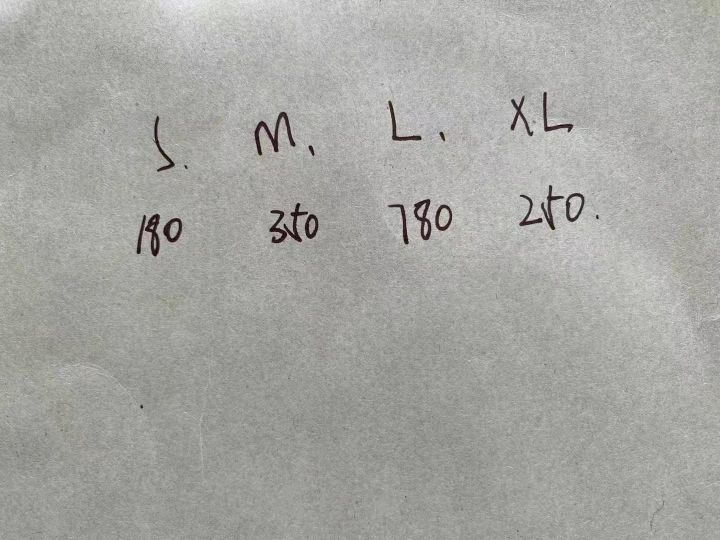 S. M. L. XL
180 350 780 250.